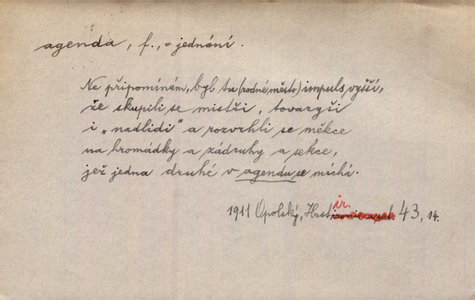 agenda, f., = jednání.
Ne připomínám, byl tu (rodné město) impuls vyšší,
že skupili se mistři, tovaryši
i „nadlidi" a rozvrhli se měkce
na hromádky a zádruhy a sekce,
jež jedna druhé v agendu se míchá.
ir.
1911 Opolský, Hrst 43, 14.